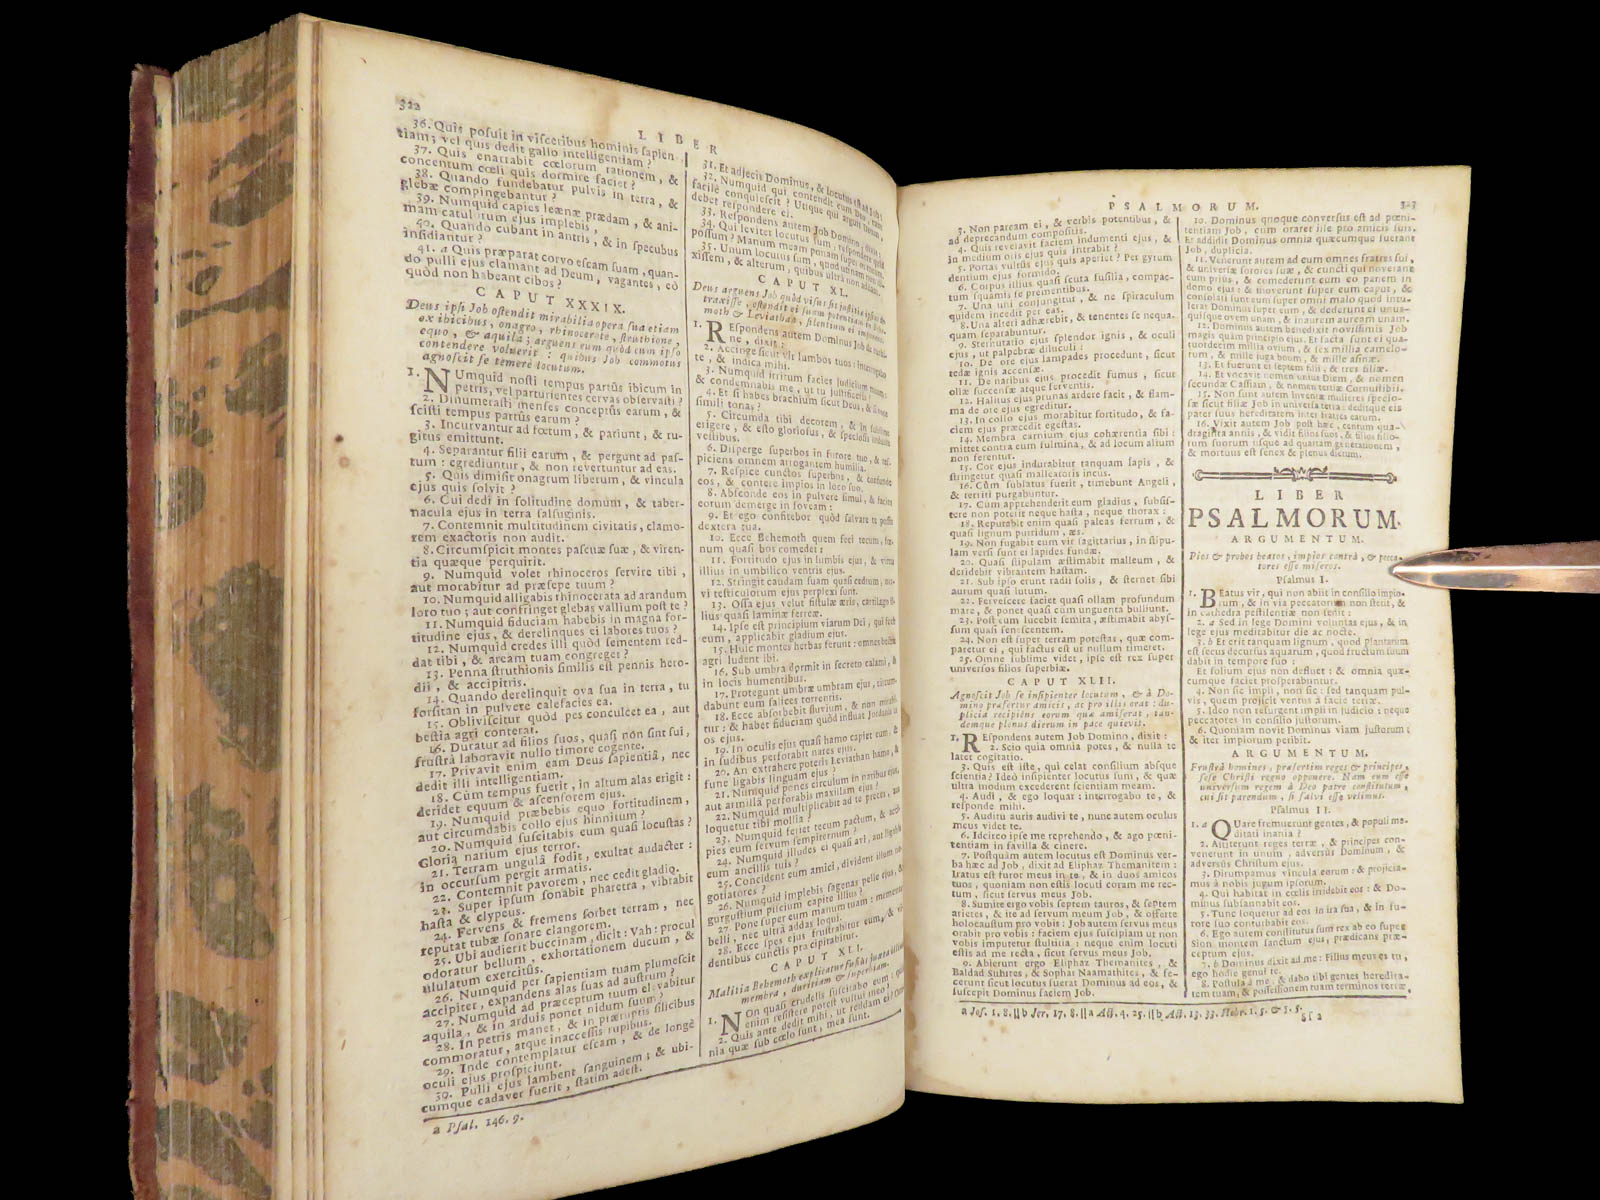 322
LIBER
36. Quis posuit in visceribus hominis sapien
tiam; vel quis dedit gallo intelligentiam?
37. Quis enarrabit cœlorum rationem, &
concentum cœli quis dormire faciet?
38. Quando fundebatur pulvis in terra, &
glebæ compingebantur?
39. Numquid capies leænæ prædam, & ani-
mam catulorum ejus implebis,
40. Quando cubant in antris, & in specubus
insidiantur?
41. a Quis præparat corvo escam suam, quan-
do pulli ejus clamant ad Deum, vagantes, eò
quòd non habeant cibos?
CAPUT XXXIX.
Deus ipsi Job ostendit mirabilia opera sua etiam
ex ibicibus, onagro, rhinocerote, struthione,
equo, & aquila; arguens eum quòd cum ipso
contendere voluerit: quibus Job commotus
agnoscit se temerè locutum.
1. NUmquid nosti tempus partûs ibicum in
petris, vel parturientes cervas observasti?
2. Dinumerasti menses conceptûs earum, &
scisti tempus partûs earum?
3. Incurvantur ad fœtum, & pariunt, & ru-
gitus emittunt.
4. Separantur filii earum, & pergunt ad pas-
tum: egrediuntur, & non revertuntur ad eas.
5. Quis dimisit onagrum liberum, & vincula
ejus quis solvit?
6. Cui dedi in solitudine domum, & taber-
nacula ejus in terra salsuginis.
7. Contemnit multitudinem civitatis, clamo-
rem exactoris non audit.
8. Circumspicit montes pascuæ suæ, & viren-
tia quæque perquirit.
9. Numquid volet rhinoceros servire tibi,
aut morabitur ad præsepe tuum?
10. Numquid alligabis rhinocerota ad arandum
loro tuo; aut confringet glebas vallium post te?
11. Numquid fiduciam habebis in magna for-
titudine ejus, & derelinques ei labores tuos?
12. Numquid credes illi quòd sementem red-
dat tibi, & aream tuam congreget?
13. Penna struthionis similis est pennis hero-
dii, & accipitris.
14. Quando derelinquit ova sua in terra, tu
forsitan in pulvere calefacies ea.
15. Obliviscitur quòd pes conculcet ea, aut
bestia agri conterat.
16. Duratur ad filios suos, quasi non sint sui,
frustrà laboravit nullo timore cogente.
17. Privavit enim eam Deus sapientiâ, nec
dedit illi intelligentiam.
18. Cùm tempus fuerit, in altum alas erigit:
deridet equum & ascensorem ejus.
19. Numquid præbebis equo fortitudinem,
aut circumdabis collo ejus hinnitum?
20. Numquid suscitabis eum quasi locustas?
Gloria narium ejus terror.
21. Terram ungulâ fodit, exultat audacter:
in occursum pergit armatis.
22. Contemnit pavorem, nec cedit gladio.
23. Super ipsum sonabit pharetra, vibrabit
hasta & clypeus.
24. Fervens & fremens sorbet terram, nec
reputat tubæ sonare clangorem.
25. Ubi audierit buccinam, dicit: Vah: procul
odoratur bellum, exhortationem ducum, &
ululatum exercitûs.
26. Numquid per sapientiam tuam plumescit
accipiter, expandens alas suas ad austrum?
27. Numquid ad præceptum tuum elevabitur
aquila, & in arduis ponet nidum suum?
28. In petris manet, & in præruptis silicibus
commoratur, atque inaccessis rupibus.
29. Inde contemplatur escam, & de longè
oculi ejus prospiciunt.
30. Pulli ejus lambent sanguinem; & ubi-
cumque cadaver fuerit, statim adest.
a Psal. 146. 9.
31. Et adjecit Dominus, & locutus est ad Job:
32. Numquid qui contendit cum Deo, tam
facilè conquiescit? Utique qui arguit Deum,
debet respondere ei.
33. Respondens autem Job Domino, dixit:
34. Qui leviter locutus sum, respondere quid
possum? Manum meam ponam super os meum.
35. Unum locutus sum, quod utinam non di-
xissem, & alterum, quibus ultrà non addam.
CAPUT XL.
Deus arguens Job quòd visus sit justitiæ ipsius de-
traxisse, ostendit ei suam potentiam in Behe-
moth & Leviathan, silentium ei imponens.
1. REspondens autem Dominus Job de turbi-
ne, dixit:
2. Accinge sicut vir lumbos tuos: interrogabo
te, & indica mihi.
3. Numquid irritum facies judicium meum:
& condemnabis me, ut tu justificeris?
4. Et si habes brachium sicut Deus, & si voce
simili tonas?
5. Circumda tibi decorem, & in sublime
erigere, & esto gloriosus, & speciosis induere
vestibus.
6. Disperge superbos in furore tuo, & res-
piciens omnem arrogantem humilia.
7. Respice cunctos superbos, & confunde
eos, & contere impios in loco suo.
8. Absconde eos in pulvere simul, & facies
eorum demerge in foveam:
9. Et ego confitebor quòd salvare te possit
dextera tua.
10. Ecce Behemoth quem feci tecum, fœ-
num quasi bos comedet:
11. Fortitudo ejus in lumbis ejus, & virtus
illius in umbilico ventris ejus.
12. Stringit caudam suam quasi cedrum, ner-
vi testiculorum ejus perplexi sunt.
13. Ossa ejus velut fistulæ æris, cartilago il-
lius quasi laminæ ferreæ.
14. Ipse est principium viarum Dei, qui fecit
eum, applicabit gladium ejus.
15. Huic montes herbas ferunt: omnes bestiæ
agri ludent ibi.
16. Sub umbra dormit in secreto calami, &
in locis humentibus.
17. Protegunt umbræ umbram ejus, circum-
dabunt eum salices torrentis.
18. Ecce absorbebit fluvium, & non mirabi-
tur: & habet fiduciam quòd influat Jordanis in
os ejus.
19. In oculis ejus quasi hamo capiet eum, &
in sudibus perforabit nares ejus.
20. An extrahere poteris Leviathan hamo, &
fune ligabis linguam ejus?
21. Numquid pones circulum in naribus ejus,
aut armillâ perforabis maxillam ejus?
22. Numquid multiplicabit ad te preces, aut
loquetur tibi mollia?
23. Numquid feriet tecum pactum, & acci-
pies eum servum sempiternum?
24. Numquid illudes ei quasi avi, aut ligabis
eum ancillis tuis?
25. Concident eum amici, divident illum ne-
gotiatores?
26. Numquid implebis sagenas pelle ejus, &
gurgustium piscium capite illius?
27. Pone super eum manum tuam: memento
belli, nec ultrà addas loqui.
28. Ecce spes ejus frustrabitur eum, & vi-
dentibus cunctis præcipitabitur.
CAPUT XLI.
Malitia Behemoth explicatur fusiùs juxta illius
membra, duritiam & superbiam.
1. NOn quasi crudelis suscitabo eum: quis
enim resistere potest vultui meo?
2. Quis ante dedit mihi, ut reddam ei? Om-
nia quæ sub cœlo sunt, mea sunt.
PSALMORUM.
323
3. Non parcam ei, & verbis potentibus, &
ad deprecandum compositis.
4. Quis revelavit faciem indumenti ejus, &
in medium oris ejus quis intrabit?
5. Portas vultûs ejus quis aperiet? Per gyrum
dentium ejus formido.
6. Corpus illius quasi scuta fusilia, compac-
tum squamis se prementibus.
7. Una uni conjungitur, & ne spiraculum
quidem incedit per eas.
8. Una alteri adhærebit, & tenentes se nequa-
quam separabuntur.
9. Sternutatio ejus splendor ignis, & oculi
ejus, ut palpebræ diluculi:
10. De ore ejus lampades procedunt, sicut
tedæ ignis accensæ.
11. De naribus ejus procedit fumus, sicut
ollæ succensæ atque ferventis.
12. Halitus ejus prunas ardere facit, & flam-
ma de ore ejus egreditur.
13. In collo ejus morabitur fortitudo, & fa-
ciem ejus præcedit egestas.
14. Membra carnium ejus cohærentia sibi:
mittet contra eum fulmina, & ad locum alium
non ferentur.
15. Cor ejus indurabitur tanquam lapis, &
stringetur quasi malleatoris incus.
16. Cùm sublatus fuerit, timebunt Angeli,
& territi purgabuntur.
17. Cùm apprehenderit eum gladius, subsis-
tere non poterit neque hasta, neque thorax:
18. Reputabit enim quasi paleas ferrum, &
quasi lignum putridum, æs.
19. Non fugabit eum vir sagittarius, in stipu-
lam versi sunt ei lapides fundæ.
20. Quasi stipulam æstimabit malleum, &
deridebit vibrantem hastam.
21. Sub ipso erunt radii solis, & sternet sibi
aurum quasi lutum.
22. Fervescere faciet quasi ollam profundum
mare, & ponet quasi cùm unguenta bulliunt.
23. Post eum lucebit semita, æstimabit abys-
sum quasi senescentem.
24. Non est super terram potestas, quæ com-
paretur ei, qui factus est ut nullum timeret.
25. Omne sublime videt, ipse est rex super
universos filios superbiæ.
CAPUT XLII.
Agnoscit Job se insipienter locutum, & à Do-
mino præfertur amicis, at pro illis orat: du-
plicia recipiens eorum quæ amiserat, tan-
demque plenus dierum in pace quievit.
1. REspondens autem Job Domino, dixit:
2. Scio quia omnia potes, & nulla te
latet cogitatio.
3. Quis est iste, qui celat consilium absque
scientia? Ideò insipienter locutus sum, & quæ
ultra modum excederent scientiam meam.
4. Audi, & ego loquar: interrogabo te, &
responde mihi.
5. Auditu auris audivi te, nunc autem oculus
meus videt te.
6. Idcirco ipse me reprehendo, & ago pœni-
tentiam in favilla & cinere.
7. Postquàm autem locutus est Dominus ver-
ba hæc ad Job, dixit ad Eliphaz Themanitem:
Iratus est furor meus in te, & in duos amicos
tuos, quoniam non estis locuti coram me rec-
tum, sicut servus meus Job.
8. Sumite ergo vobis septem tauros, & septem
arietes, & ite ad servum meum Job, & offerte
holocaustum pro vobis: Job autem servus meus
orabit pro vobis: faciem ejus suscipiam ut non
vobis imputetur stultitia: neque enim locuti
estis ad me recta, sicut servus meus Job.
9. Abierunt ergo Eliphaz Themanites, &
Baldad Suhites, & Sophar Naamathites, & fe-
cerunt sicut locutus fuerat Dominus ad eos, &
suscepit Dominus faciem Job.
10. Dominus quoque conversus est ad pœni-
tentiam Job, cum oraret ille pro amicis suis.
Et addidit Dominus omnia quæcumque fuerant
Job, duplicia.
11. Venerunt autem ad eum omnes fratres sui,
& universæ sorores suæ, & cuncti qui noverant
eum priùs, & comederunt cum eo panem in
domo ejus: & moverunt super eum caput, &
consolati sunt eum super omni malo quod intu-
lerat Dominus super eum, & dederunt ei unus-
quisque ovem unam, & inaurem auream unam.
12. Dominus autem benedixit novissimis Job
magis quàm principio ejus. Et facta sunt ei qua-
tuordecim millia ovium, & sex millia camelo-
rum, & mille juga boum, & mille asinæ.
13. Et fuerunt ei septem filii, & tres filiæ.
14. Et vocavit nomen unius Diem, & nomen
secundæ Cassiam, & nomen tertiæ Cornustibii.
15. Non sunt autem inventæ mulieres specio-
sæ sicut filiæ Job in universa terra: deditque eis
pater suus hereditatem inter fratres earum.
16. Vixit autem Job post hæc, centum qua-
draginta annis, & vidit filios suos, & filios filio-
rum suorum usque ad quartam generationem,
& mortuus est senex & plenus dierum.
LIBER
PSALMORUM.
ARGUMENTUM.
Pios & probos beatos, impios contrà, & pecca-
tores esse miseros.
Psalmus I.
1. BEatus vir, qui non abiit in consilio impio-
rum, & in via peccatorum non stetit, &
in cathedra pestilentiæ non sedit:
2. a Sed in lege Domini voluntas ejus, & in
lege ejus meditabitur die ac nocte.
3. b Et erit tanquam lignum, quod plantatum
est secus decursus aquarum, quod fructum suum
dabit in tempore suo:
Et folium ejus non defluet: & omnia quæ-
cumque faciet prosperabuntur.
4. Non sic impii, non sic: sed tanquam pul-
vis, quem projicit ventus à facie terræ.
5. Ideo non resurgent impii in judicio: neque
peccatores in consilio justorum.
6. Quoniam novit Dominus viam justorum:
& iter impiorum peribit.
ARGUMENTUM.
Frustrà homines, præsertim reges & principes,
sese Christi regno opponere. Nam eum esse
universum regem à Deo patre constitutum,
cui sit parendum, si salvi esse velimus.
Psalmus II.
1. a QUare fremuerunt gentes, & populi me-
ditati inania?
2. Astiterunt reges terræ, & principes con-
venerunt in unum, adversùs Dominum, &
adversùs Christum ejus.
3. Dirumpamus vincula eorum: & projicia-
mus à nobis jugum ipsorum.
4. Qui habitat in cœlis irridebit eos: & Do-
minus subsannabit eos.
5. Tunc loquetur ad eos in ira sua, & in fu-
rore suo conturbabit eos.
6. Ego autem constitutus sum rex ab eo super
Sion montem sanctum ejus, prædicans præ-
ceptum ejus.
7. b Dominus dixit ad me: Filius meus es tu,
ego hodie genui te.
8. Postula à me, & dabo tibi gentes heredita-
tem tuam, & possessionem tuam terminos terræ.
a Jos. 1. 8. || b Jer. 17. 8. || a Act. 4. 25. || b Act. 13. 33. Hebr. 1. 5. & 5. 5.
Sf 2